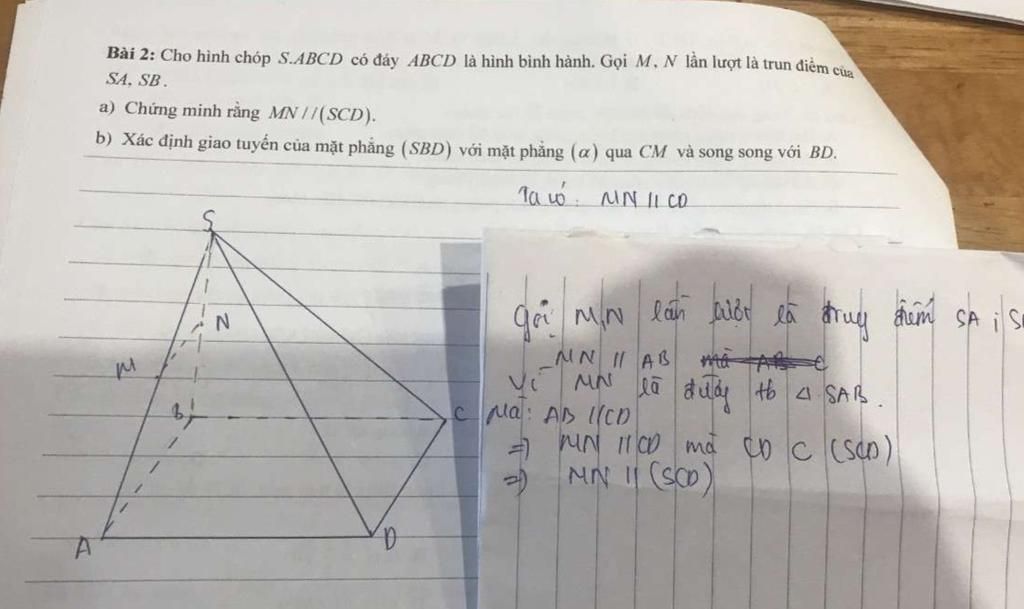 Bài 2: Cho hình chóp S.ABCD có đáy ABCD là hình bình hành. Gọi M, N lần lượt là trun điểm của
SA, SB.
a) Chứng minh rằng MN//(SCD).
b) Xác định giao tuyến của mặt phẳng (SBD) với mặt phẳng (α) qua CM và song song với BD.
Ta có: MN // CD
S
N
M
B
C
A
D
Gọi M,N lần lượt là trung điểm SA ; S
MN // AB
Vì MN là đường tb △ SAB.
Mà: AB // CD
=) MN // CD mà CD ⊂ (SCD)
=) MN // (SCD)